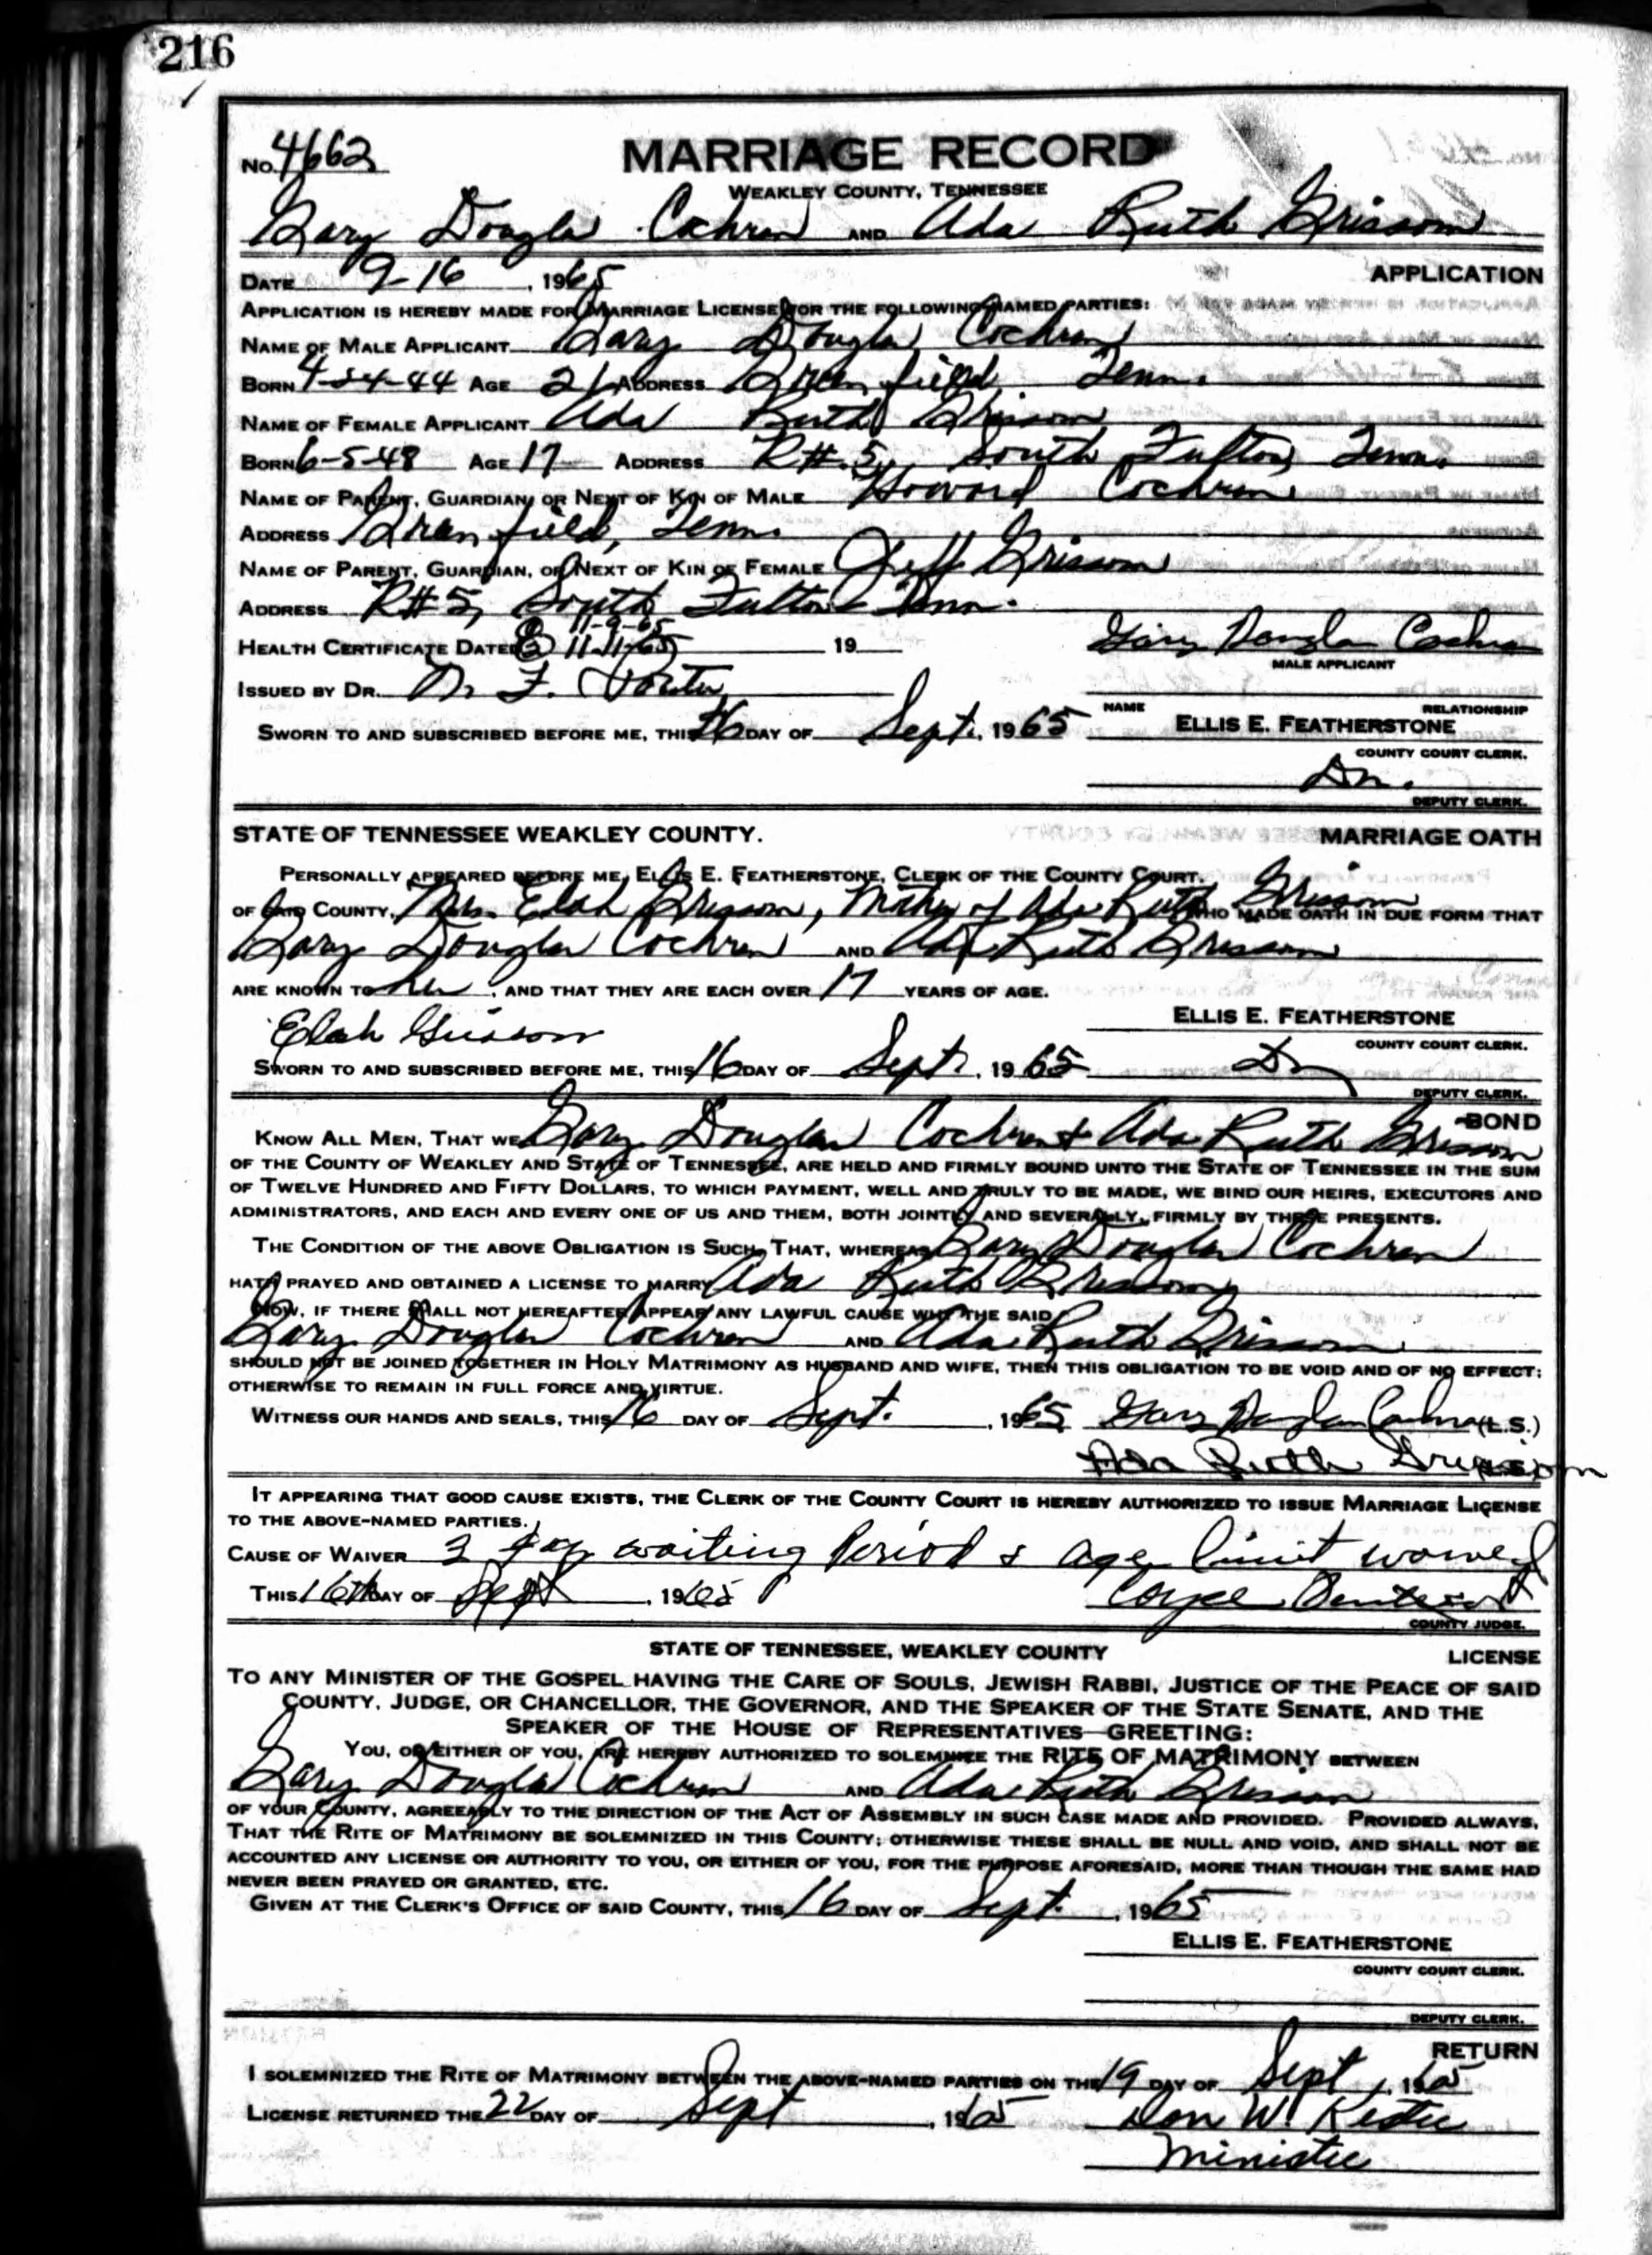 216
No. 4662
MARRIAGE RECORD
WEAKLEY COUNTY, TENNESSEE
Gary Douglas Cochran AND Ada Ruth Grissom
DATE 9-16, 1965 APPLICATION
APPLICATION IS HEREBY MADE FOR MARRIAGE LICENSE FOR THE FOLLOWING NAMED PARTIES:
NAME OF MALE APPLICANT Gary Douglas Cochran
BORN 4-24-44 AGE 21 ADDRESS Greenfield, Tenn.
NAME OF FEMALE APPLICANT Ada Ruth Grissom
BORN 6-5-48 AGE 17 ADDRESS R#5, South Fulton, Tenn.
NAME OF PARENT, GUARDIAN, OR NEXT OF KIN OF MALE Howard Cochran
ADDRESS Greenfield, Tenn.
NAME OF PARENT, GUARDIAN, OR NEXT OF KIN OF FEMALE Jeff Grissom
ADDRESS R#5, South Fulton Tenn.
11-9-65
HEALTH CERTIFICATE DATED 11-11-65 19 Gary Douglas Cochran
MALE APPLICANT
ISSUED BY DR. F. Porter
NAME RELATIONSHIP
SWORN TO AND SUBSCRIBED BEFORE ME, THIS 16 DAY OF Sept., 1965 ELLIS E. FEATHERSTONE
COUNTY COURT CLERK.
DEPUTY CLERK.
STATE OF TENNESSEE WEAKLEY COUNTY. MARRIAGE OATH
PERSONALLY APPEARED BEFORE ME, ELLIS E. FEATHERSTONE, CLERK OF THE COUNTY COURT.
OF SAID COUNTY, Mrs. Elah Grissom, Mother of Ada Ruth Grissom WHO MADE OATH IN DUE FORM THAT
Gary Douglas Cochran AND Ada Ruth Grissom
ARE KNOWN TO her, AND THAT THEY ARE EACH OVER 17 YEARS OF AGE.
Elah Grissom ELLIS E. FEATHERSTONE
COUNTY COURT CLERK.
SWORN TO AND SUBSCRIBED BEFORE ME, THIS 16 DAY OF Sept., 1965
DEPUTY CLERK.
BOND
KNOW ALL MEN, THAT WE Gary Douglas Cochran + Ada Ruth Grissom
OF THE COUNTY OF WEAKLEY AND STATE OF TENNESSEE, ARE HELD AND FIRMLY BOUND UNTO THE STATE OF TENNESSEE IN THE SUM
OF TWELVE HUNDRED AND FIFTY DOLLARS, TO WHICH PAYMENT, WELL AND TRULY TO BE MADE, WE BIND OUR HEIRS, EXECUTORS AND
ADMINISTRATORS, AND EACH AND EVERY ONE OF US AND THEM, BOTH JOINTLY AND SEVERALLY, FIRMLY BY THESE PRESENTS.
THE CONDITION OF THE ABOVE OBLIGATION IS SUCH, THAT, WHEREAS Gary Douglas Cochran
HATH PRAYED AND OBTAINED A LICENSE TO MARRY Ada Ruth Grissom
NOW, IF THERE SHALL NOT HEREAFTER APPEAR ANY LAWFUL CAUSE WHY THE SAID
Gary Douglas Cochran AND Ada Ruth Grissom
SHOULD NOT BE JOINED TOGETHER IN HOLY MATRIMONY AS HUSBAND AND WIFE, THEN THIS OBLIGATION TO BE VOID AND OF NO EFFECT;
OTHERWISE TO REMAIN IN FULL FORCE AND VIRTUE.
WITNESS OUR HANDS AND SEALS, THIS 16 DAY OF Sept., 1965 Gary Douglas Cochran (L.S.)
Ada Ruth Grissom
IT APPEARING THAT GOOD CAUSE EXISTS, THE CLERK OF THE COUNTY COURT IS HEREBY AUTHORIZED TO ISSUE MARRIAGE LICENSE
TO THE ABOVE-NAMED PARTIES.
CAUSE OF WAIVER 3 day waiting Period & age limit waived
THIS 16th DAY OF Sept, 1965
COUNTY JUDGE.
STATE OF TENNESSEE, WEAKLEY COUNTY LICENSE
TO ANY MINISTER OF THE GOSPEL HAVING THE CARE OF SOULS, JEWISH RABBI, JUSTICE OF THE PEACE OF SAID
COUNTY, JUDGE, OR CHANCELLOR, THE GOVERNOR, AND THE SPEAKER OF THE STATE SENATE, AND THE
SPEAKER OF THE HOUSE OF REPRESENTATIVES—GREETING:
YOU, OR EITHER OF YOU, ARE HEREBY AUTHORIZED TO SOLEMNIZE THE RITE OF MATRIMONY BETWEEN
Gary Douglas Cochran AND Ada Ruth Grissom
OF YOUR COUNTY, AGREEABLY TO THE DIRECTION OF THE ACT OF ASSEMBLY IN SUCH CASE MADE AND PROVIDED. PROVIDED ALWAYS,
THAT THE RITE OF MATRIMONY BE SOLEMNIZED IN THIS COUNTY; OTHERWISE THESE SHALL BE NULL AND VOID, AND SHALL NOT BE
ACCOUNTED ANY LICENSE OR AUTHORITY TO YOU, OR EITHER OF YOU, FOR THE PURPOSE AFORESAID, MORE THAN THOUGH THE SAME HAD
NEVER BEEN PRAYED OR GRANTED, ETC.
GIVEN AT THE CLERK'S OFFICE OF SAID COUNTY, THIS 16 DAY OF Sept., 1965
ELLIS E. FEATHERSTONE
COUNTY COURT CLERK.
DEPUTY CLERK.
RETURN
I SOLEMNIZED THE RITE OF MATRIMONY BETWEEN THE ABOVE-NAMED PARTIES ON THE 19 DAY OF Sept, 1965
LICENSE RETURNED THE 22 DAY OF Sept, 1965 Don W.
Minister